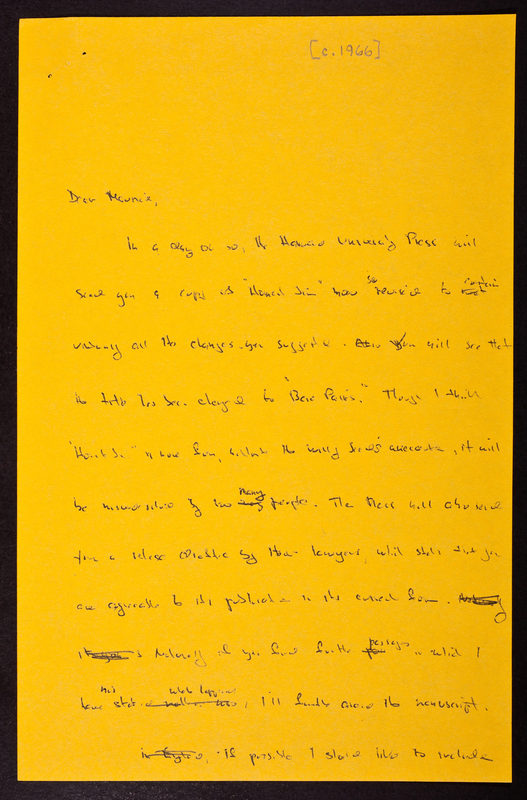 [c. 1966]
Dear Maurice,
In a day or so, the Harvard University Press will
send you a copy of "Honest Jim" now so revised to contain
virtually all the changes you suggested. You will see that
the title has been changed to "Base Pairs." Though I think
"Honest Jim" is more fun, without the Willy Seeds anecdote, it will
be misunderstood by too many people. The Press will also send
you a release drafted by their lawyers, which states that you
are agreeable to its publication in its current form.
Naturally if you find further passages in which I
have mis what happened, I'll further amend the manuscript.
If possible I should like to include